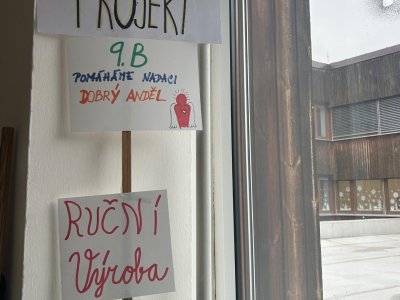 PROJEKT
9.B
POMÁHÁME NADACI
DOBRÝ ANDĚL
RUČNÍ
Výroba